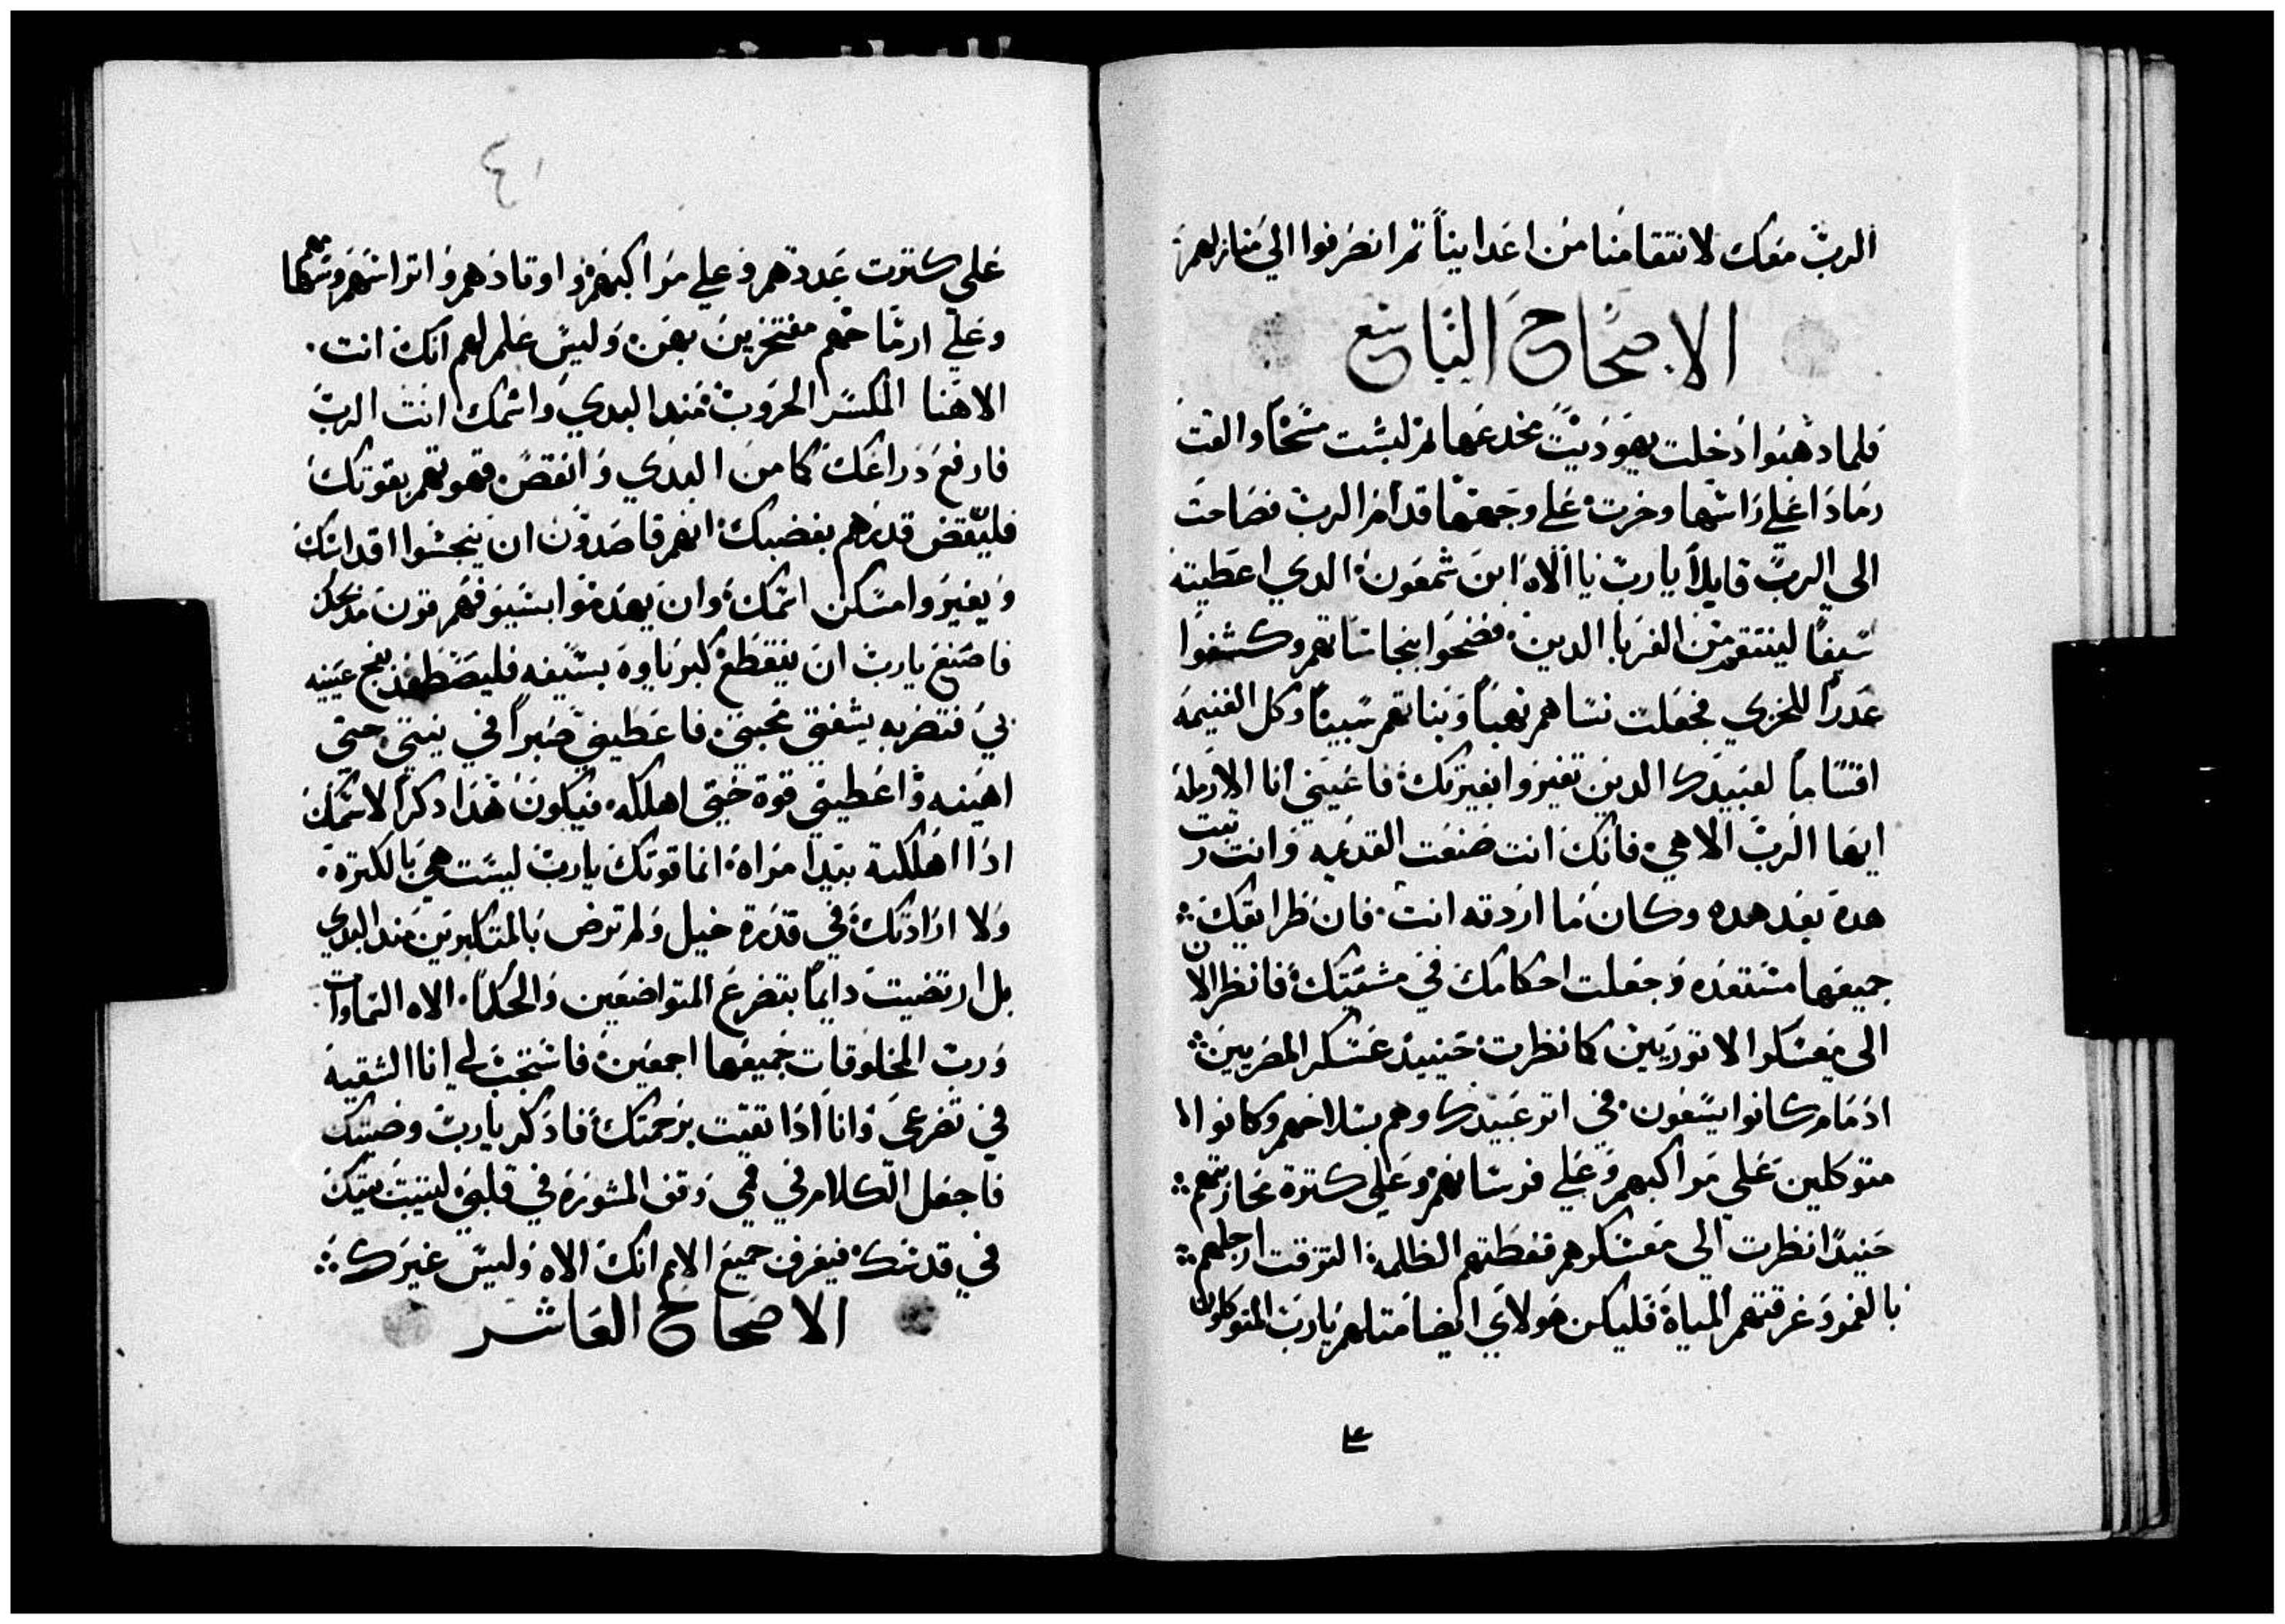 الرب معك لانتقامنا من اعداينا ثم انصرفوا الي منازلهم
الاصحاح التاسع
فلما دهبوا دخلت يهوديت مخدعها ثم لبست مسحًا والقت
رمادا علي راسها وخرت علي وجهها قدام الرب فصاحت
الى الرب قايلاً يا رب يا الاه ابن شمعون الدي اعطيته
سيفًا لينتقم من الغربا الدين فضحوا بنجاساتهم وكشفوا
عدرًا للخزي فجعلت نساهم نهبًا وبناتهم سبيًا وكل الغنيمه
اقتسامًا لعبيدك الدين تغيروا بغيرتك فاعينني انا الارمله
ايها الرب الاهي فانك انت صنعت القديمه وانت رتبت
هده بعد هده وكان ما اردته انت فان طرايقك
جميعها مستعده وجعلت احكامك في مشيتك فانظر الان
الى معسكر الاتوريين كما نظرت حينيد عسكر المصريين
ادمام كانوا يسعون في اثر عبيدك وهم بسلاحهم وكانوا
متوكلين علي مواكبهم وعلي فرسانهم وعلي كترة محاربيهم
حنيدًا نظرت الي معسكرهم فغطتهم الظلمة التزقت ارجلهم
بالغمر وغرقتهم المياه فليكن هولاي ايضا متلهم يا رب المتوكلون
عل
٤١
علي كترت عددهم وعلي مواكبهم واوتادهم واتراسهم وسهامهم
وعلي ارماحهم مفتخرين بهن وليس علم لهم انك انت
الاهنا المكسر الحروب مند البدي واسمك انت الرب
فارفع دراعك كما من البدي وانقص قوتهم بقوتك
فلينقض قدرهم بغضبك انهم قاصدون ان ينجسوا اقداسك
ويغيروا مسكن اسمك وان يهدموا بسيوفهم قرون مدبحك
فاصنع يا رب ان ينقطع كبرياوه بسيفه فليصطاد بفخ عينيه
بي فتضربه بشفتي محبتي فاعطيني صبرًا في نيتي حتى
اهينه واعطيني قوة حتي اهلكه فيكون هدا دكرًا لاسمك
ادا اهلكته بيدا مراة انما قوتك يا رب ليست هي بالكتره
ولا ارادتك في قدرة خيل ولم ترض بالمتكبرين مند البدي
بل ارتضيت دايمًا بتضرع المتواضعين والحكما الاه السماوات
ورب المخلوقات جميعها اجمعين فاستجب لي انا الشقيه
في تضرعي وانا ادا تقيت برحمتك فادكر يا رب وصيتك
فاجعل الكلام في فمي وقف المشوره في قلبي ليتبت بيتك
في قدسك فيعرف جميع الامم انك الاه وليس غيرك
الاصحاح العاشر